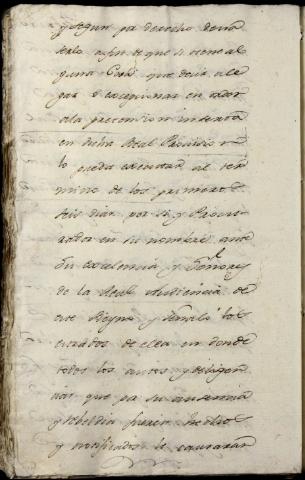 y segun por derecho devia
serlo a fin de que si tiene al
guna Cosa que decir ale
gar o excepcionar en razon
a la pretencion inserta
en dicha Real Provision
lo pueda executar al ter
mino de los primeros
seis dias por si y Procu
rador en su nombre ante
Su excelencia y Señores
de la Real Audiencia de
este Reyno y Señaló los
estrados de ella en donde
todos los autos y diligen
cias que por su ausencia
y rebeldia fueren hechos
y notificados le causaran